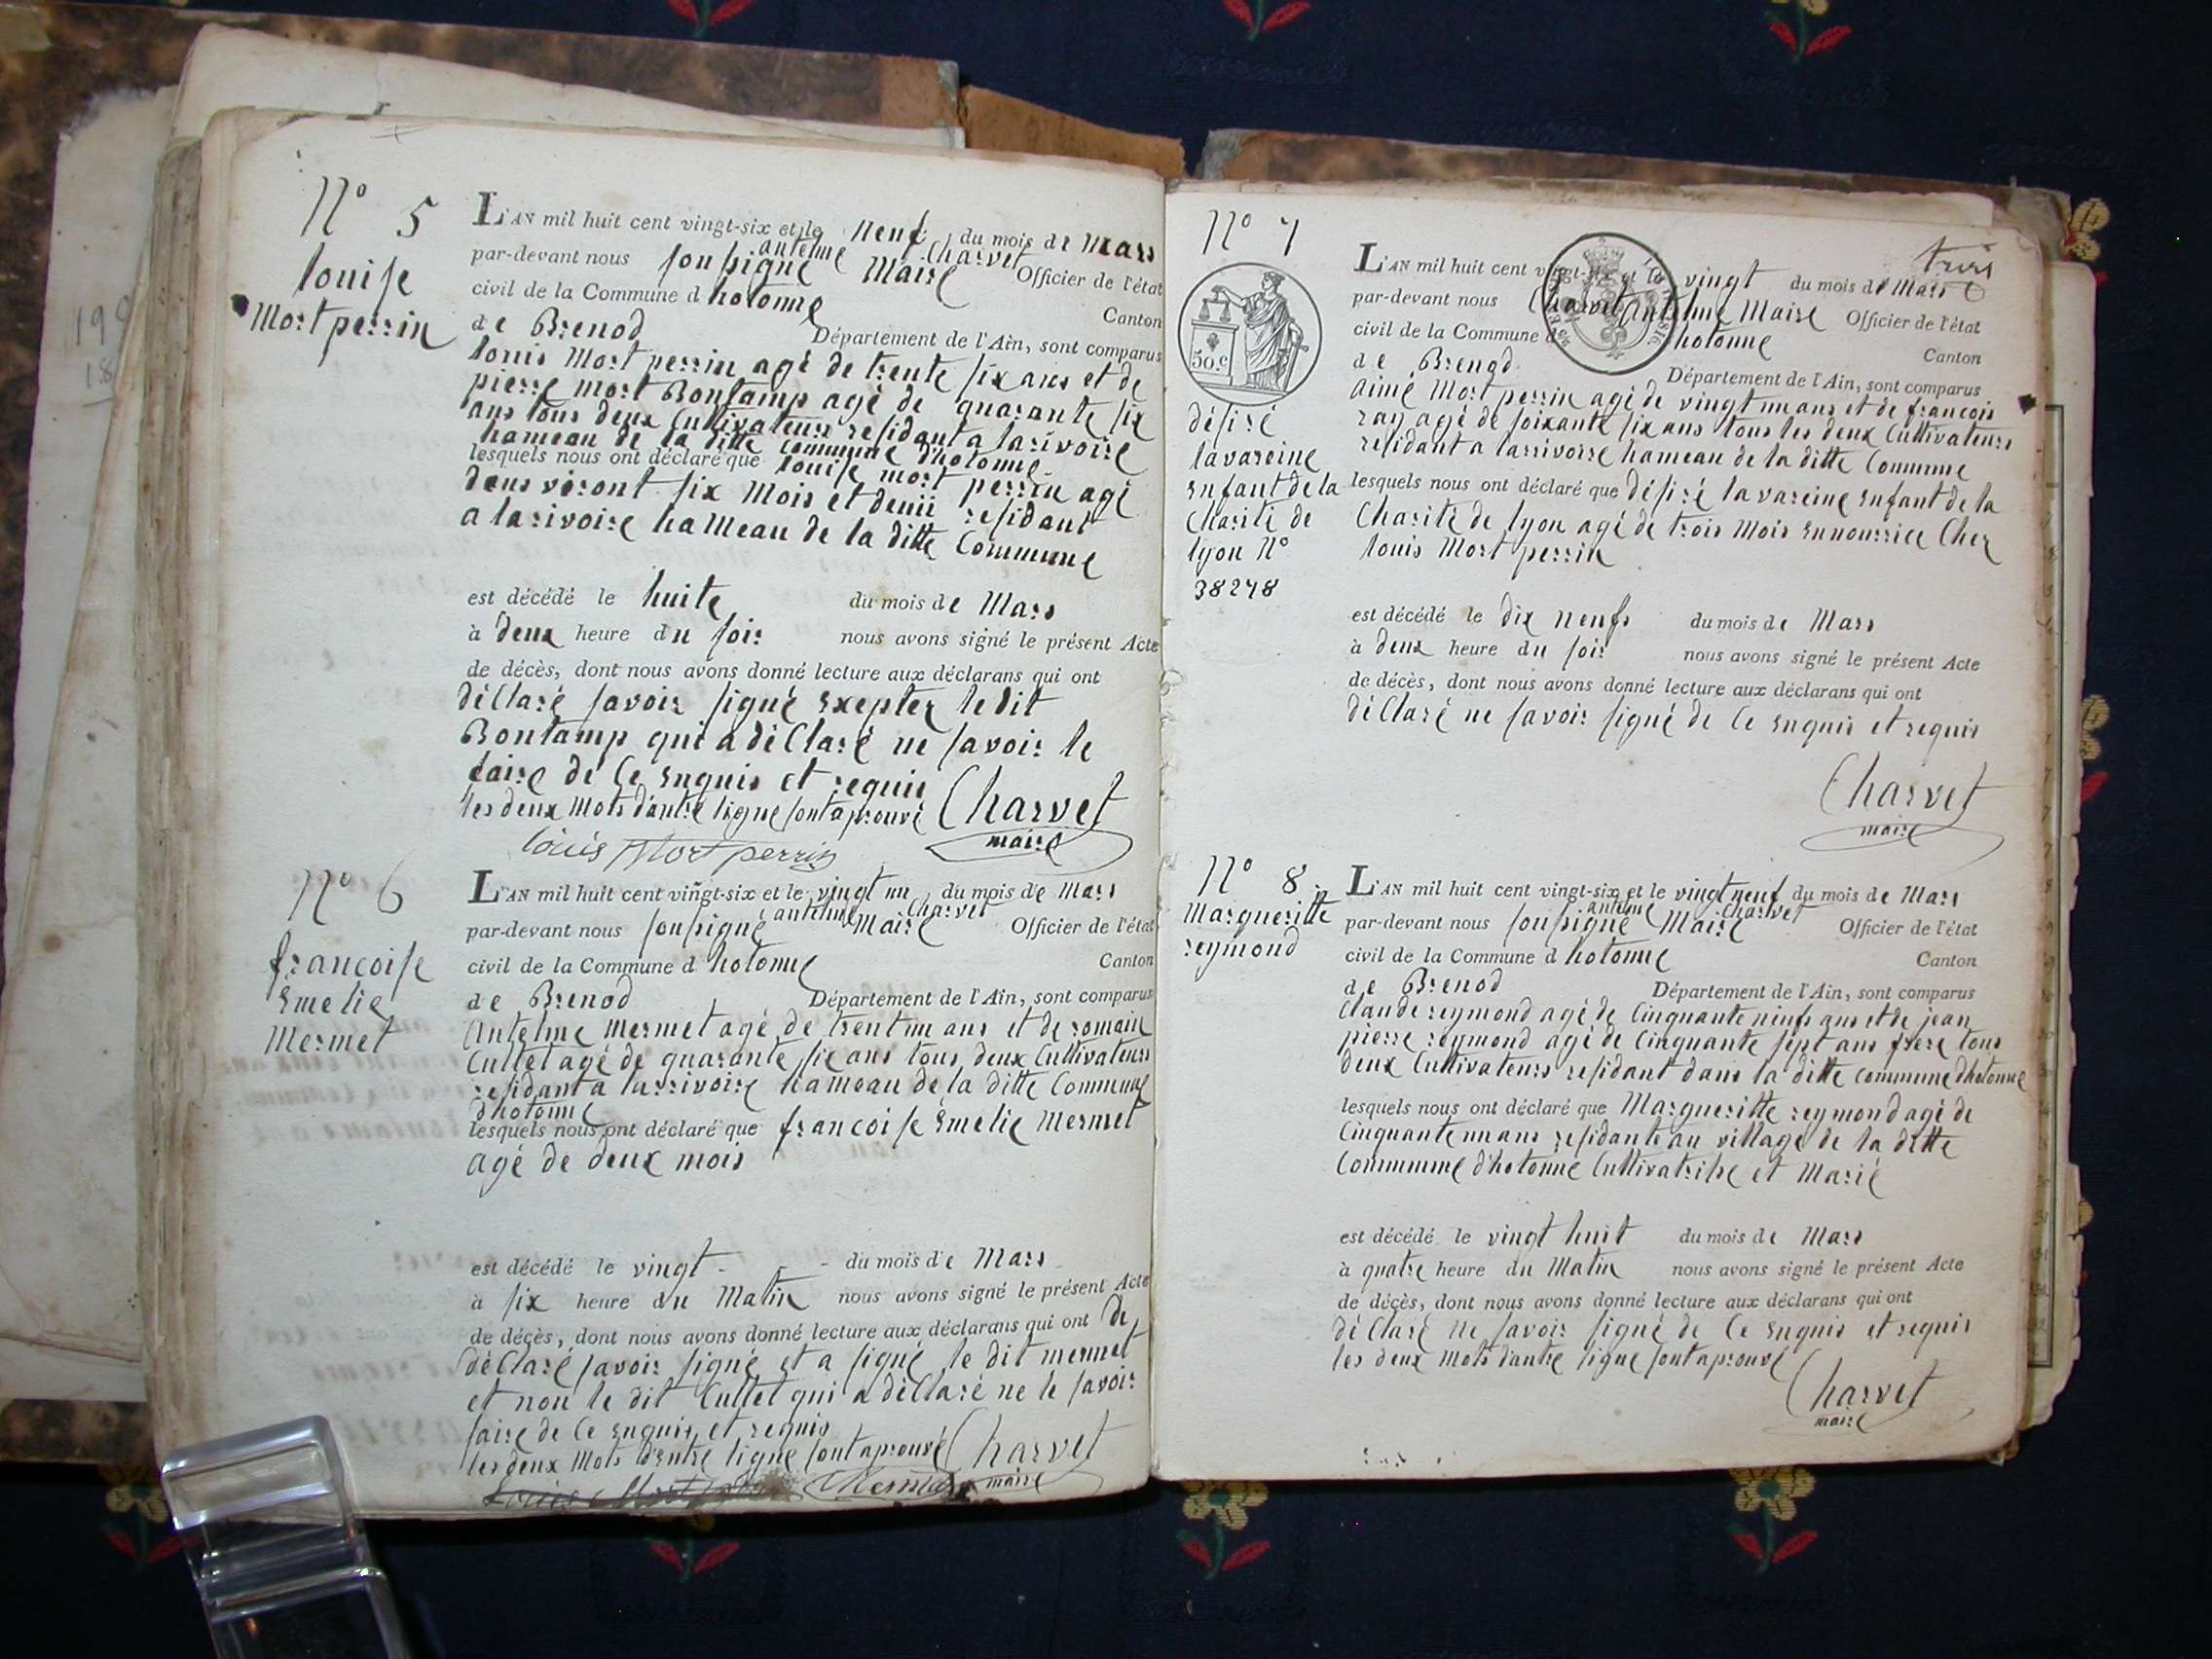 N° 5
louise
Mort perrin
L'AN mil huit cent vingt-six et le neuf du mois de Mars
antelme Charvet
par-devant nous sousigné Maire Officier de l'état
civil de la Commune d hotonne Canton
de Brenod Département de l'Ain, sont comparus
louis Mort perrin agé de trente six ans et de
pierre mort Bontamp agé de quarante six
ans tous deux Cultivateurs residant a larivoire
hameau de la ditte commune d'hotonne
lesquels nous ont déclaré que louise mort perrin agé
denviront six Mois et demii residant
a larivoire hameau de la ditte Commune
est décédé le huite du mois de Mars
à deux heure du soir nous avons signé le présent Acte
de décès, dont nous avons donné lecture aux déclarans qui ont
déClaré savoir signé Exepter le dit
Bontamp qui a déClaré ne savoir le
faire de Ce Enquis et requis
les deux Mots d'antre ligne sont aprouvé Charvet
maire
louis Mort perrin
N° 6
francoise
Emelie
Mermet
L'AN mil huit cent vingt-six et le vingt un du mois de Mars
antelme Charvet
par-devant nous sousigné Maire Officier de l'état
civil de la Commune d hotonne Canton
de Brenod Département de l'Ain, sont comparus
Antelme Mermet agé de trent un ans et de romain
Cultet agé de quarante six ans tous deux Cultivateurs
residant a larrivoire hameau de la ditte Commune
d'hotonne
lesquels nous ont déclaré que francoise Emelie Mermet
agé de deux mois
est décédé le vingt du mois de Mars
à six heure du Matin nous avons signé le présent Acte
de décès, dont nous avons donné lecture aux déclarans qui ont de
déClaré savoir signé et a signé le dit mermet
et non le dit Cultet qui a déClaré ne le savoir
faire de Ce Enquis et requis
les deux Mots d'Entre ligne sont aprouvé Charvet
Louis Mort Mermet maire
N° 7
trois
50.C
désiré
lavareine
Enfant de la
Charité de
lyon N°
38278
L'AN mil huit cent vingt-six et le vingt du mois de Mars
par-devant nous Charvet Antelme Maire Officier de l'état
civil de la Commune d hotonne Canton
de Brenod Département de l'Ain, sont comparus
aimé Mort perrin agé de vingt un ans et de francois
ray agé de soixante six ans tous les deux Cultivateurs
residant a larrivoire hameau de la ditte Commune
lesquels nous ont déclaré que désiré lavareine Enfant de la
Charité de lyon agé de trois Mois Ennourrice Chez
louis Mort perrin
est décédé le dix neufs du mois de Mars
à deux heure du soir nous avons signé le présent Acte
de décès, dont nous avons donné lecture aux déclarans qui ont
déClaré ne savoir signé de Ce Enquis et requis
Charvet
maire
N° 8
Margueritte
reymond
L'AN mil huit cent vingt-six et le vingt neuf du mois de Mars
antelme Charvet
par-devant nous sousigné Maire Officier de l'état
civil de la Commune d hotonne Canton
de Brenod Département de l'Ain, sont comparus
Claude reymond agé de Cinquante neufs ans et de jean
pierre reymond agé de Cinquante sept ans frere tous
deux Cultivateurs residant dans la ditte commune d'hotonne
lesquels nous ont déclaré que Margueritte reymond agé de
Cinquante un ans residante au village de la ditte
Commune d'hotonne Cultivatrise et Marié
est décédé le vingt huit du mois de Mars
à quatre heure du Matin nous avons signé le présent Acte
de décès, dont nous avons donné lecture aux déclarans qui ont
déClaré Ne savoir signé de Ce Enquis et requis
les deux Mots d'antre ligne sont aprouvé
Charvet
maire